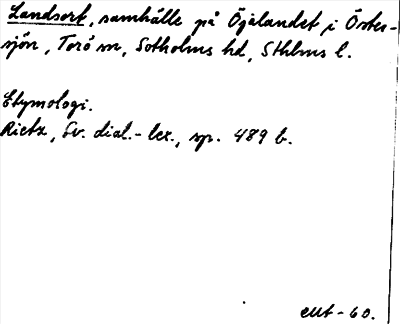 Landsort, samhälle på Öjalandet i Öster-
sjön, Torö sn, Sotholms hd, Sthlms l.
Etymologi.
Rietz, Sv. dial.-lex., sp. 489 b.
-60.